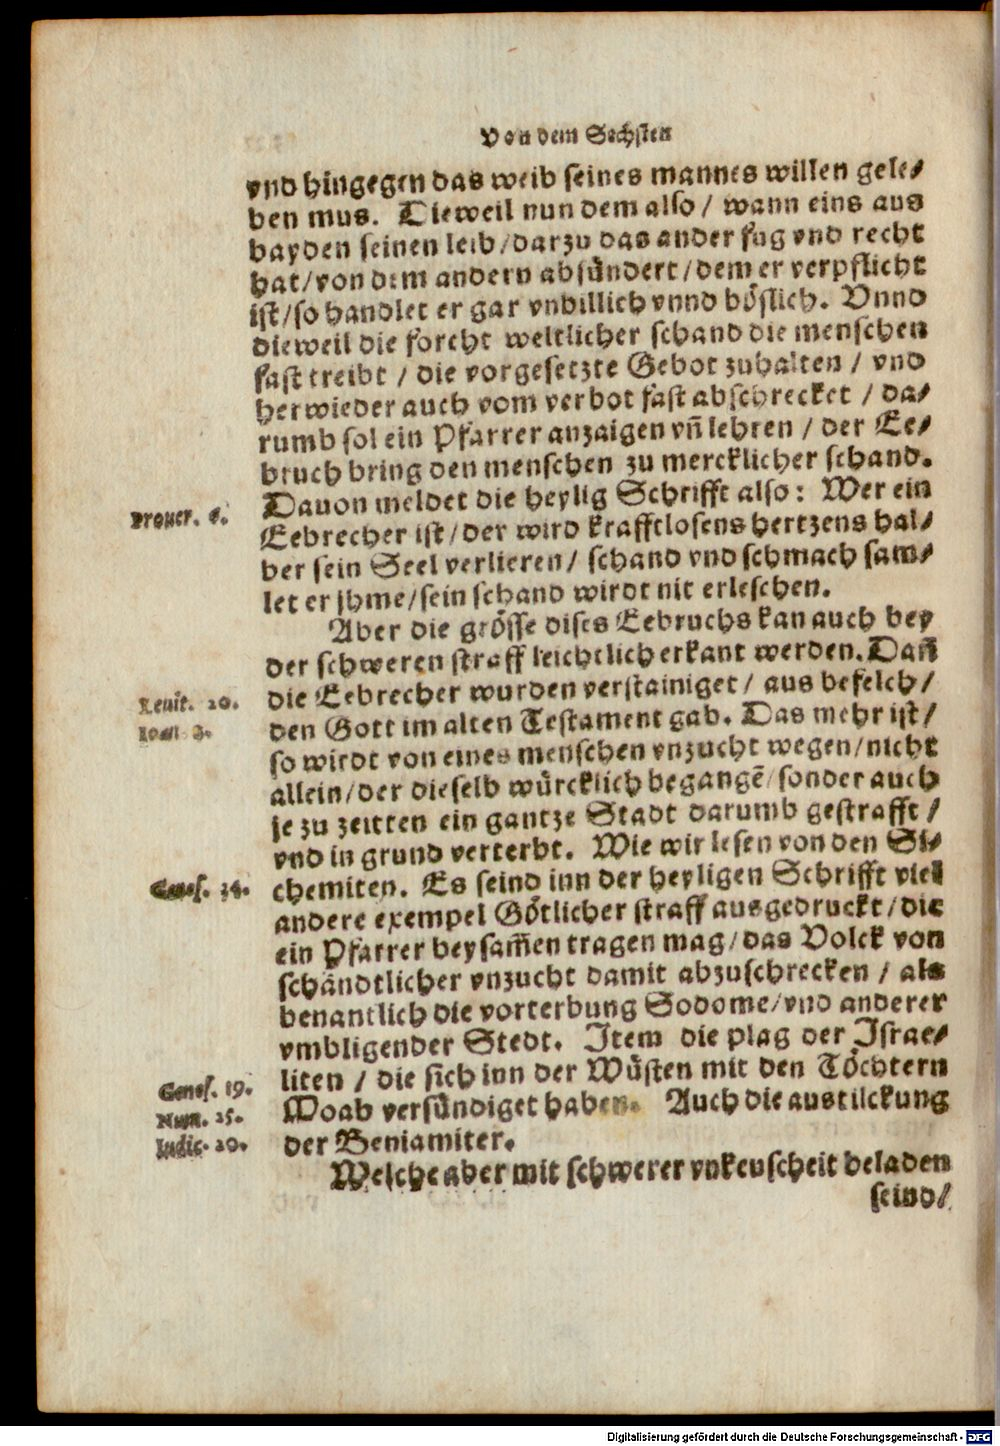 Von dem Sechsten
vnd hingegen das weib seines mannes willen gele⸗
ben mus. Dieweil nun dem also / wann eins aus
bayden seinen leib / darzu das ander fug vnd recht
hat / von dem andern absündert / dem er verpflicht
ist / so handlet er gar vnbillich vnnd böslich. Vnnd
dieweil die forcht weltlicher schand die menschen
fast treibt / die vorgesetzte Gebot zuhalten / vnd
herwieder auch vom verbot fast abschrecket / da⸗
rumb sol ein Pfarrer anzaigen vn̄ lehren / der Ee⸗
bruch bring den menschen zu mercklicher schand.
Dauon meldet die heylig Schrifft also: Wer ein
Prouer. 6.
Eebrecher ist / der wird krafftlosens hertzens hal⸗
ber sein Seel verlieren / schand vnd schmach sam⸗
let er jhme / sein schand wirdt nit erleschen.
Aber die grösse dises Eebruchs kan auch bey
der schweren straff leichtlich erkant werden. Dan̄
die Eebrecher wurden verstainiget / aus befelch /
Leuit. 20.
den Gott im alten Testament gab. Das mehr ist /
Ioan. 8.
so wirdt von eines menschen vnzucht wegen / nicht
allein / der dieselb würcklich begangē / sonder auch
je zu zeitten ein gantze Stadt darumb gestrafft /
vnd in grund verterbt. Wie wir lesen von den Si⸗
chemiten. Es seind inn der heyligen Schrifft viel
Genes. 34.
andere exempel Götlicher straff ausgedruckt / die
ein Pfarrer beysam̄en tragen mag / das Volck von
schändtlicher vnzucht damit abzuschrecken / als
benantlich die vorterbung Sodome / vnd anderer
vmbligender Stedt. Item die plag der Israe⸗
liten / die sich inn der Wüsten mit den Töchtern
Genes. 19.
Moab versündiget haben. Auch die austilckung
Num. 25.
der Beniamiter.
Iudic. 20.
Welche aber mit schwerer vnkeuscheit beladen
seind /
Digitalisierung gefördert durch die Deutsche Forschungsgemeinschaft - DFG